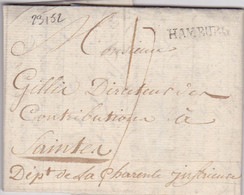 23152
HAMBURG
Monsieur
Gillis Directeur des
Contributions à
Saintes
Dépt. de La Charente inférieure